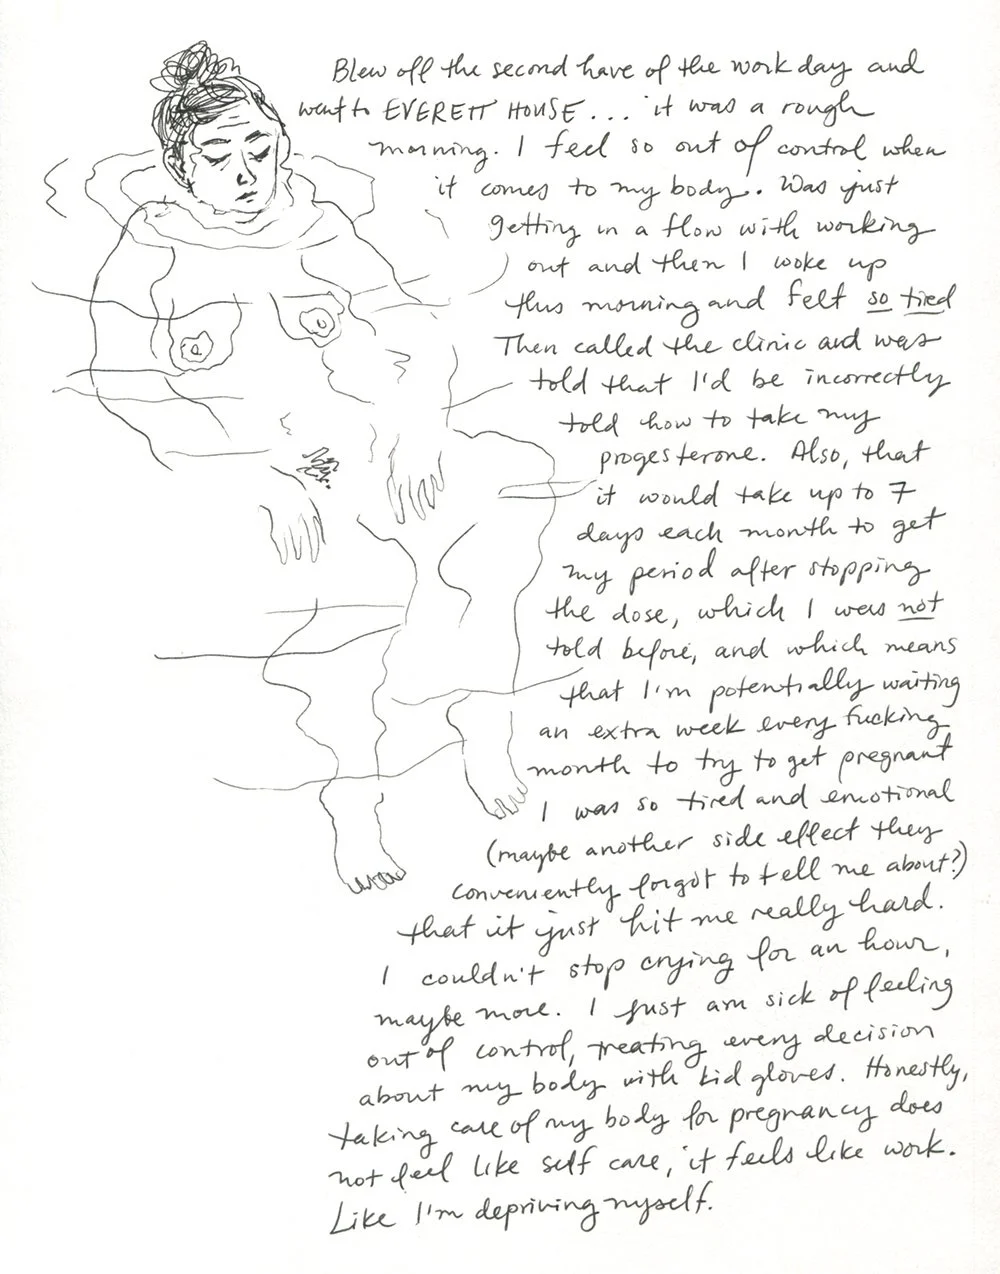 Blew off the second have of the work day and
went to EVERETT HOUSE... it was a rough
morning. I feel so out of control when
it comes to my body. Was just
getting in a flow with working
out and then I woke up
this morning and felt so tired
Then called the clinic and was
told that I'd be incorrectly
told how to take my
progesterone. Also, that
it would take up to 7
days each month to get
my period after stopping
the dose, which I was not
told before, and which means
that I'm potentially waiting
an extra week every fucking
month to try to get pregnant
I was so tired and emotional
(maybe another side effect they
conveniently forgot to tell me about?)
that it just hit me really hard.
I couldn't stop crying for an hour,
maybe more. I just am sick of feeling
out of control, treating every decision
about my body with kid gloves. Honestly,
taking care of my body for pregnancy does
not feel like self care, it feels like work.
Like I'm depriving myself.